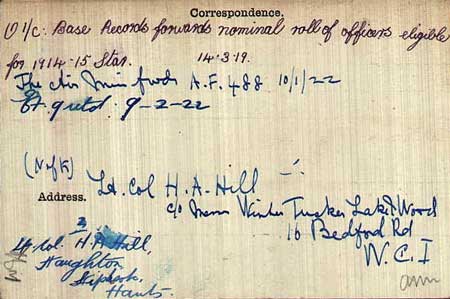 Correspondence.
O i/c. Base Records forwards nominal roll of officers eligible
for 1914-15 Star. 14·3·19.
The Air Min fwds A.F. 488 10/1/22
gr'td: 9-2-22
Lt. Col H. A. Hill
Address.
c/o Messrs Tucker Lake & Wood
16 Bedford Rd
W.C.1
Lt Col. H.A. Hill,
Haughton
Liphook,
Hants.